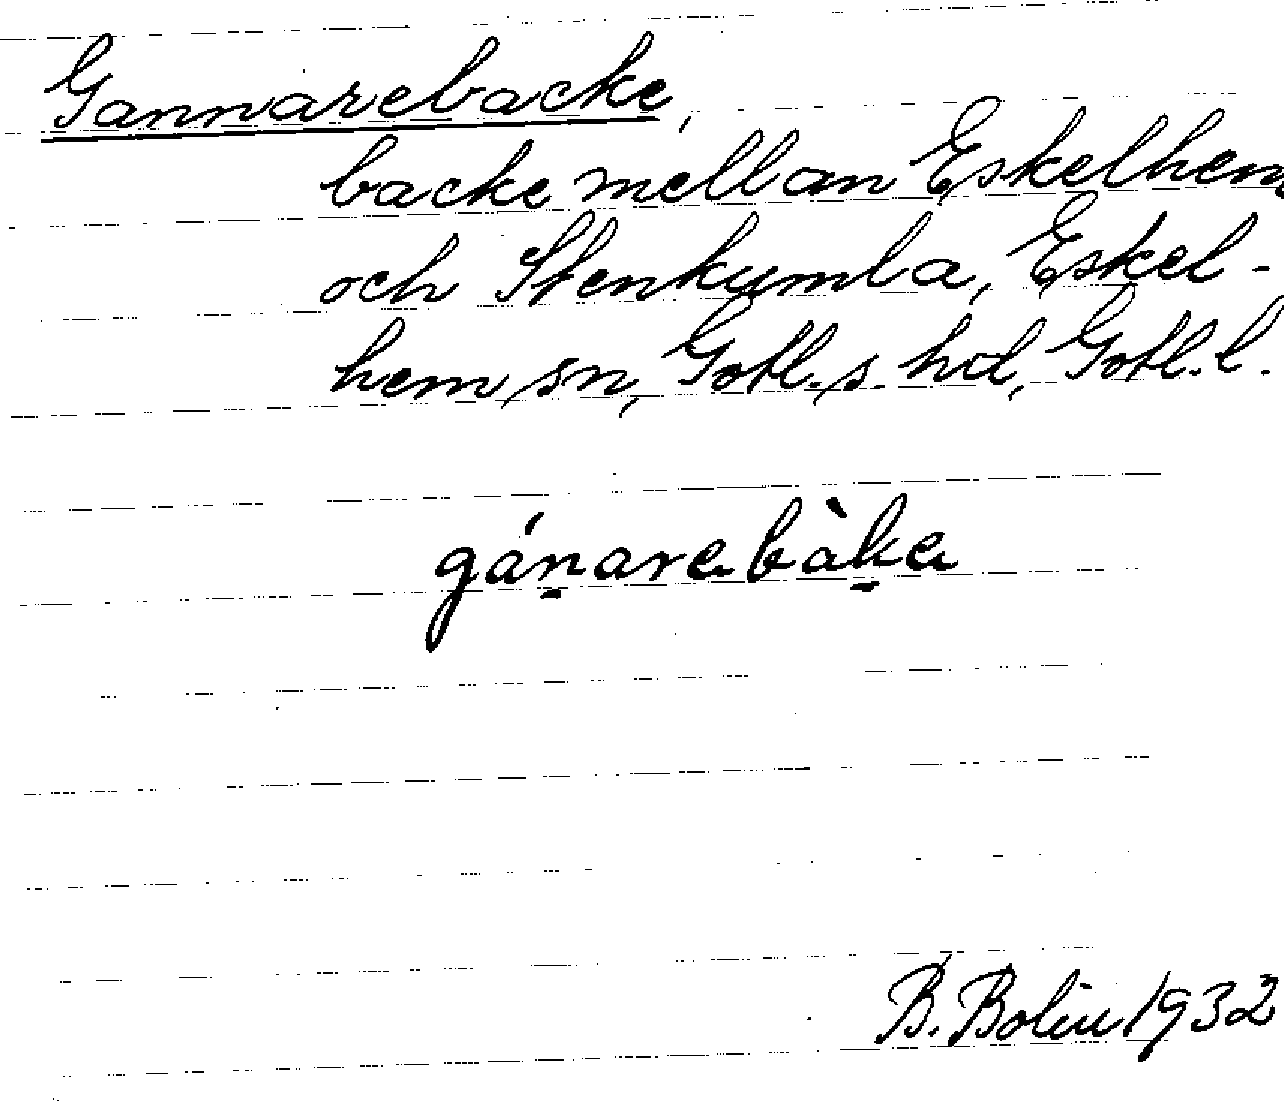 Gannarebacke,
backe mellan Eskelhem
och Stenkumla, Eskel-
hem sn, Gotl. s. hd, Gotl. l.
gánarebàke
B. Bolin 1932